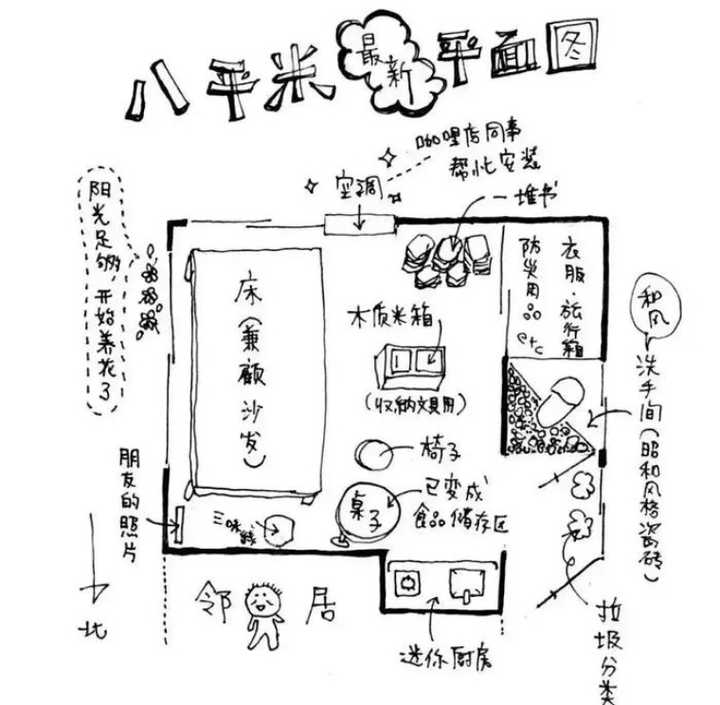 八平米最新平面图
咖喱店同事
帮忙安装
空调
一堆书
阳光足够 开始养花了
床(兼顾沙发)
衣服·旅行箱
防災用品
etc
木质米箱
(收纳文具用)
和风
洗手间(昭和风格瓷砖)
椅子
朋友的照片
三味线
桌子
已变成
食品储存区
北
邻居
迷你厨房
垃圾分类